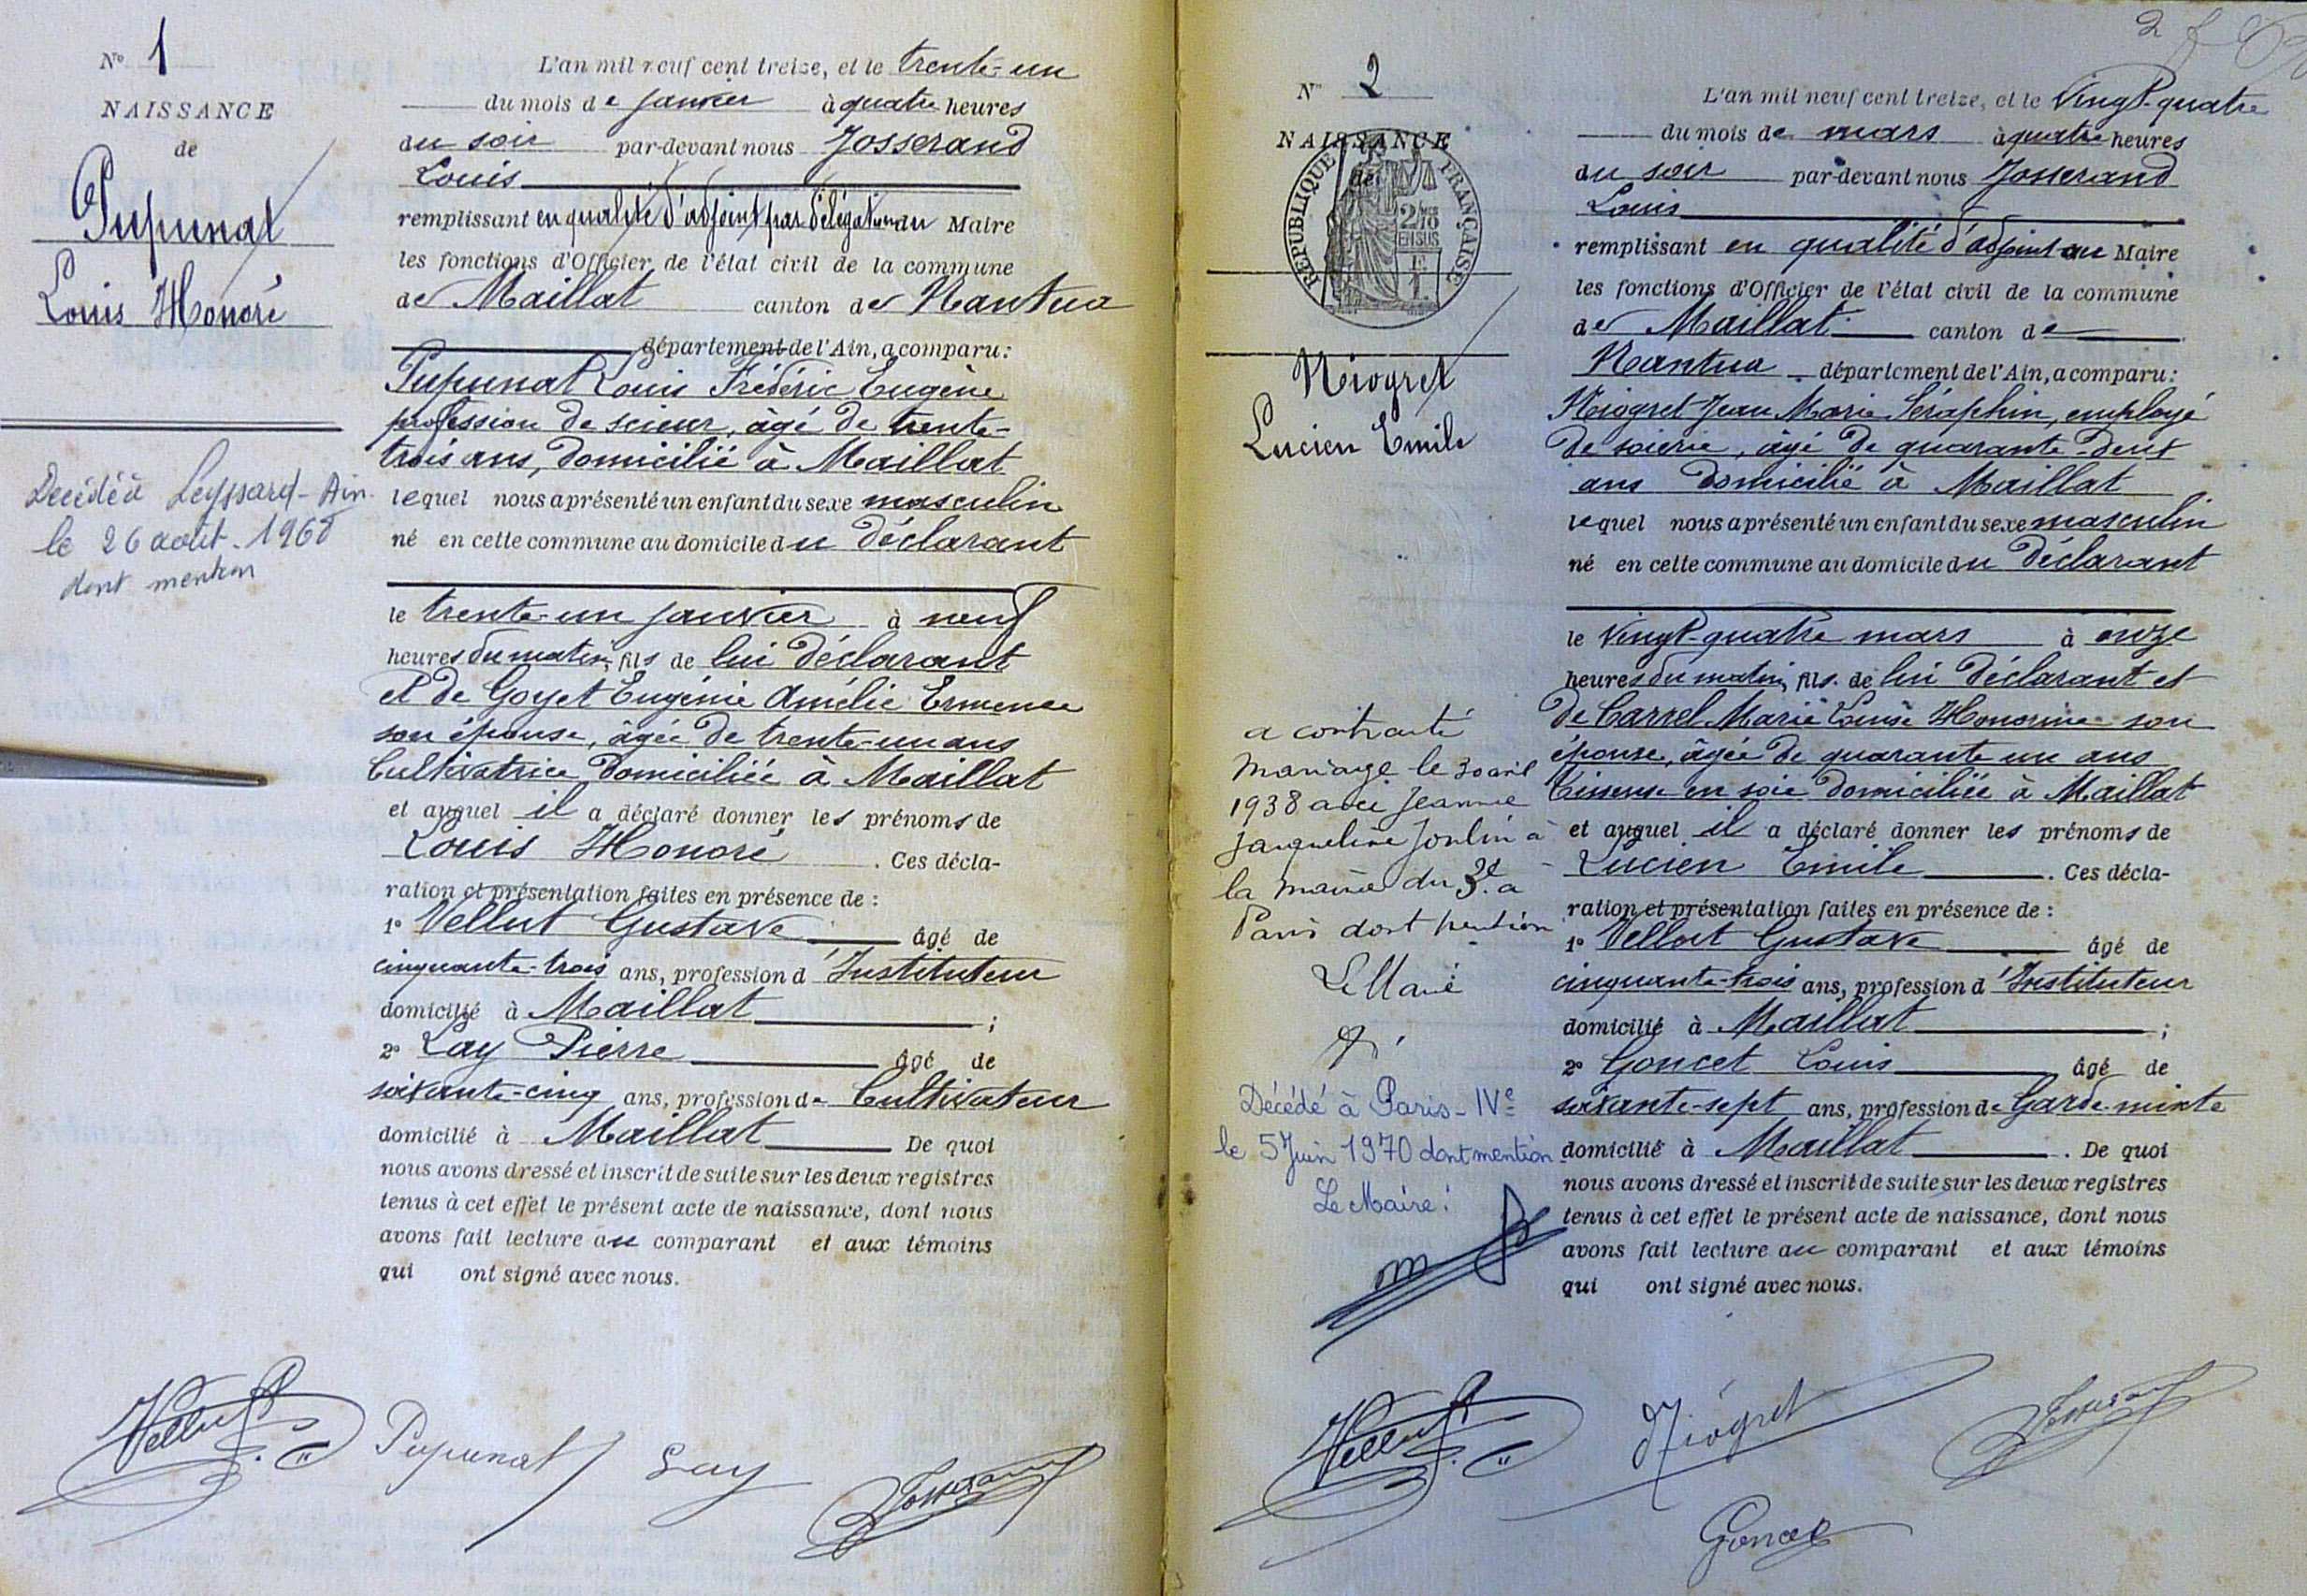 N° 1
NAISSANCE
de
Pupunat
Louis Honoré
Décédé à Leyssard - Ain
le 26 août 1968
dont mention
L'an mil neuf cent treize, et le trente-un
du mois de janvier à quatre heures
du soir par-devant nous Josserand
Louis
remplissant en qualité d'adjoint par délégation du Maire
les fonctions d'Officier de l'état civil de la commune
de Maillat canton de Nantua
département de l'Ain, a comparu:
Pupunat Louis Frédéric Eugène
profession de scieur, âgé de trente-
trois ans, domicilié à Maillat
lequel nous a présenté un enfant du sexe masculin
né en cette commune au domicile du déclarant
le trente-un janvier à neuf
heures du matin, fils de lui déclarant
et de Goyet Eugénie Amélie Ermence
son épouse, âgée de trente-un ans
Cultivatrice domiciliée à Maillat
et auquel il a déclaré donner les prénoms de
Louis Honoré . Ces décla-
ration et présentation faites en présence de :
1° Vellut Gustave âgé de
cinquante-trois ans, profession d'Instituteur
domicilié à Maillat ;
2° Lay Pierre âgé de
soixante-cinq ans, profession de Cultivateur
domicilié à Maillat De quoi
nous avons dressé et inscrit de suite sur les deux registres
tenus à cet effet le présent acte de naissance, dont nous
avons fait lecture au comparant et aux témoins
qui ont signé avec nous.
Vellut Pupunat Lay Josserand
2
N° 2
NAISSANCE
de
RÉPUBLIQUE FRANÇAISE
2/10
EN SUS
Niogret
Lucien Emile
a contracté
mariage le 30 avril
1938 avec Jeanne
Jacqueline Joulin à
la mairie du 3e à
Paris dont mention
Le Maire
Décédé à Paris - IVe
le 5 Juin 1970 dont mention
Le Maire :
L'an mil neuf cent treize, et le Vingt-quatre
du mois de mars à quatre heures
du soir par-devant nous Josserand
Louis
remplissant en qualité d'adjoint au Maire
les fonctions d'Officier de l'état civil de la commune
de Maillat canton de
Nantua département de l'Ain, a comparu:
Niogret Jean Marie Séraphin, employé
de soierie, âgé de quarante-deux
ans domicilié à Maillat
lequel nous a présenté un enfant du sexe masculin
né en cette commune au domicile du déclarant
le Vingt-quatre mars à onze
heures du matin, fils de lui déclarant et
de Carrel Marie Louise Honorine son
épouse, âgée de quarante un ans
Tisseuse en soie domiciliée à Maillat
et auquel il a déclaré donner les prénoms de
Lucien Emile . Ces décla-
ration et présentation faites en présence de :
1° Vellut Gustave âgé de
cinquante-trois ans, profession d'Instituteur
domicilié à Maillat ;
2° Goncet Louis âgé de
soixante-sept ans, profession de Garde-mixte
domicilié à Maillat . De quoi
nous avons dressé et inscrit de suite sur les deux registres
tenus à cet effet le présent acte de naissance, dont nous
avons fait lecture au comparant et aux témoins
qui ont signé avec nous.
Vellut Niogret Josserand
Goncet